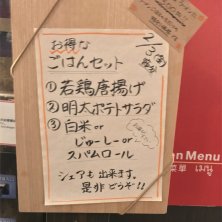 お得な
ごはんセット
2/3(金)
①若鶏唐揚げ
②明太ポテトサラダ
③白米or
じゅーしーor
スパムロール
シェアも出来ます。
是非どうぞ!!
n Menu
菜单 เมนู